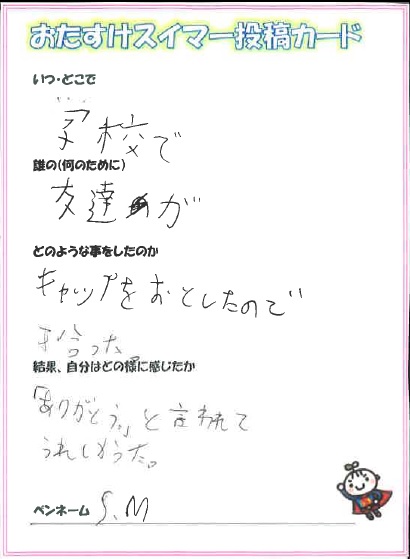 おたすけスイマー投稿カード
いつ・どこで
学校で
誰の(何のために)
友達が
どのような事をしたのか
キャップをおとしたので
拾った
結果、自分はどの様に感じたか
「ありがとう。」と言われて
うれしかった。
ペンネーム S.M